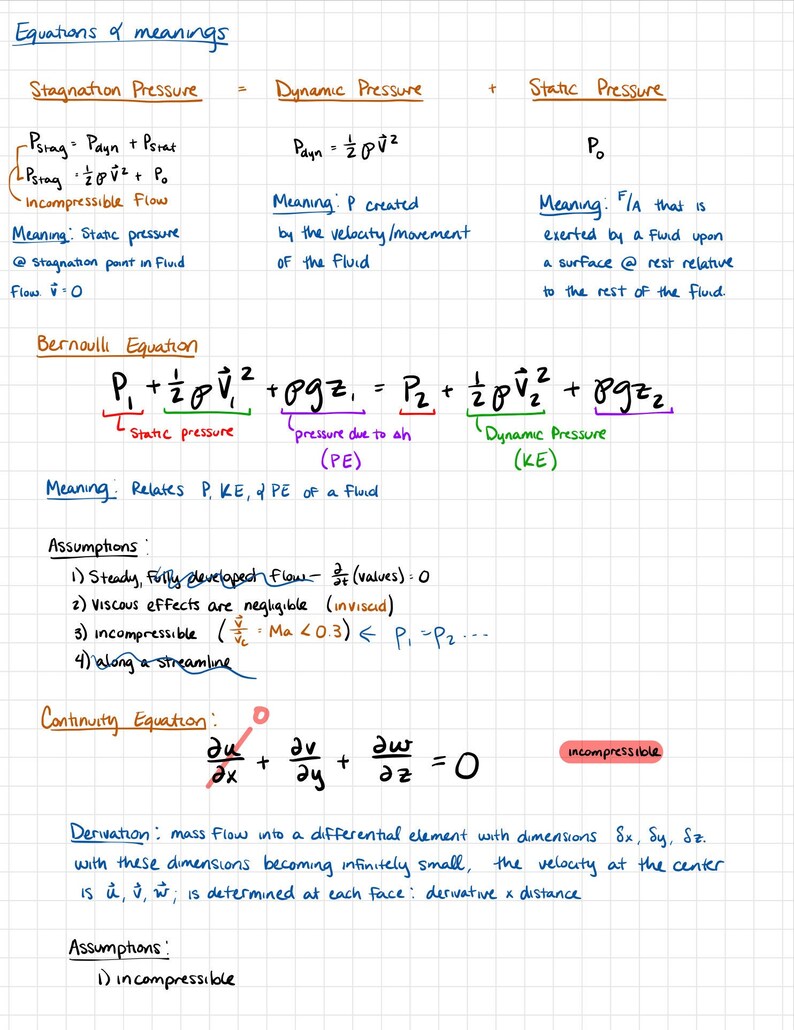 Equations & meanings
Stagnation Pressure = Dynamic Pressure + Static Pressure
P_stag = P_dyn + P_stat
P_stag = ½ρV⃗² + P₀
Incompressible Flow
Meaning: Static pressure
@ stagnation point in fluid
flow. v⃗ = 0
P_dyn = ½ρV⃗²
Meaning: P created
by the velocity/movement
of the fluid
P₀
Meaning: F/A that is
exerted by a fluid upon
a surface @ rest relative
to the rest of the fluid.
Bernoulli Equation
P₁ + ½ρV⃗₁² + ρgz₁ = P₂ + ½ρV⃗₂² + ρgz₂
Static pressure pressure due to Δh Dynamic Pressure
(PE) (KE)
Meaning: Relates P, KE, & PE of a fluid
Assumptions:
1) Steady, fully developed flow – ∂/∂t (values) = 0
2) Viscous effects are negligible (inviscid)
3) incompressible (V⃗/V⃗c = Ma < 0.3) ← ρ₁ = ρ₂ ...
4) along a streamline
Continuity Equation:
0
∂u/∂x + ∂v/∂y + ∂w/∂z = 0
incompressible
Derivation: mass flow into a differential element with dimensions δx, δy, δz.
with these dimensions becoming infinitely small, the velocity at the center
is u⃗, v⃗, w⃗; is determined at each face: derivative x distance
Assumptions:
1) incompressible